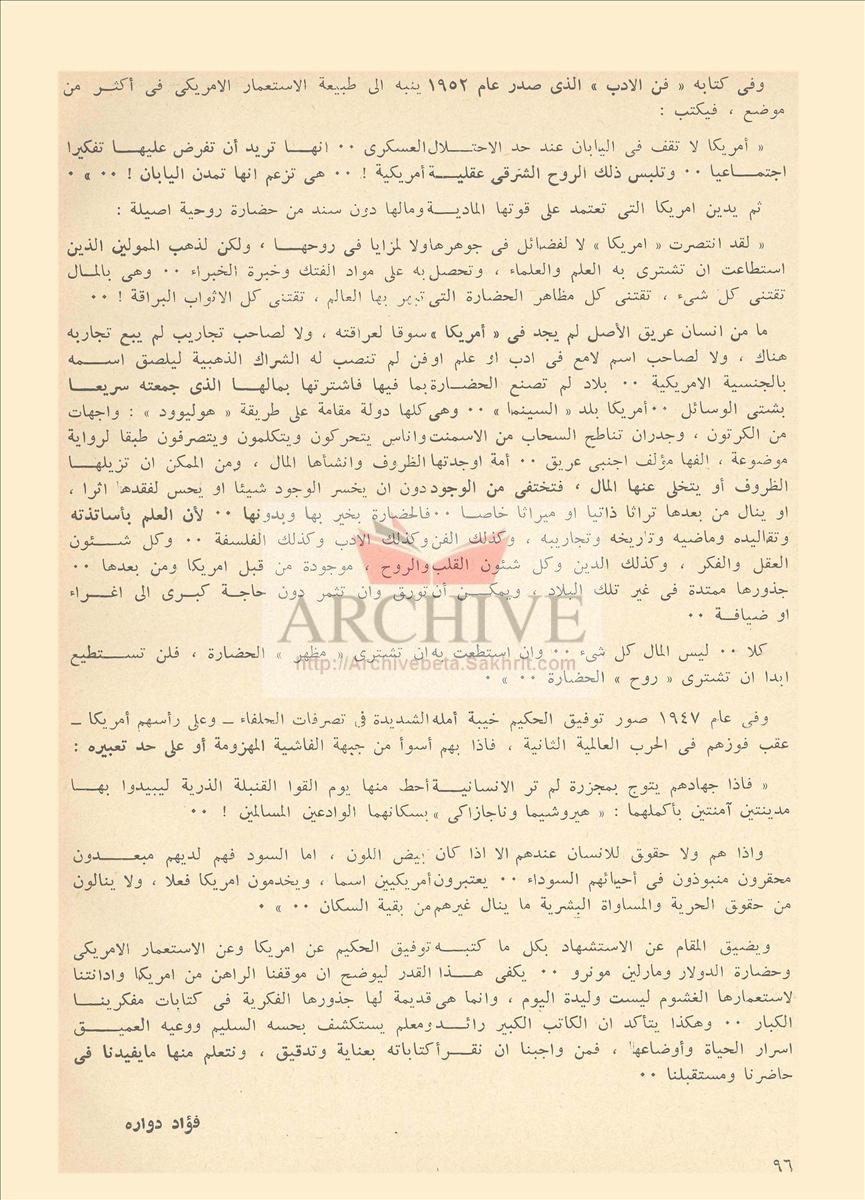 وفى كتابه « فن الادب » الذى صدر عام ١٩٥٢ ينبه الى طبيعة الاستعمار الامريكى فى أكثر من
موضع ، فيكتب :
« أمريكا لا تقف فى اليابان عند حد الاحتلال العسكرى ٠٠ انها تريد أن تفرض عليها تفكيرا
اجتماعيا ٠٠ وتلبس ذلك الروح الشرقى عقلية أمريكية ! ٠٠ هى تزعم انها تمدن اليابان ! ٠٠ » ٠
ثم يدين امريكا التى تعتمد على قوتها المادية ومالها دون سند من حضارة روحية اصيلة :
« لقد انتصرت « امريكا » لا لفضائل فى جوهرها ولا لمزايا فى روحها ، ولكن لذهب الممولين الذين
استطاعت ان تشترى به العلم والعلماء ، وتحصل به على مواد الفتك وخبرة الخبراء ٠٠ وهى بالمال
تقتنى كل شىء ، تقتنى كل مظاهر الحضارة التى تبهر بها العالم ، تقتنى كل الاثواب البراقة ! ٠٠
ما من انسان عريق الأصل لم يجد فى « أمريكا » سوقا لعراقته ، ولا لصاحب تجاريب لم يبع تجاربه
هناك ، ولا لصاحب اسم لامع فى ادب او علم او فن لم تنصب له الشراك الذهبية ليلصق اسمه
بالجنسية الامريكية ٠٠ بلاد لم تصنع الحضارة بما فيها فاشترتها بمالها الذى جمعته سريعا
بشتى الوسائل ٠٠ أمريكا بلد « السينما » ٠٠ وهى كلها دولة مقامة على طريقة « هوليوود » : واجهات
من الكرتون ، وجدران تناطح السحاب من الاسمنت واناس يتحركون ويتكلمون ويتصرفون طبقا لرواية
موضوعة ، الفها مؤلف اجنبى عريق ٠٠ أمة اوجدتها الظروف وانشأها المال ، ومن الممكن ان تزيلها
الظروف أو يتخلى عنها المال ، فتختفى من الوجود دون ان يخسر الوجود شيئا او يحس لفقدها اثرا ،
او ينال من بعدها تراثا ذاتيا او ميراثا خاصا ٠٠ فالحضارة بخير بها وبدونها ٠٠ لأن العلم بأساتذته
وتقاليده وماضيه وتاريخه وتجاريبه ، وكذلك الفن وكذلك الادب وكذلك الفلسفة ٠٠ وكل شئون
العقل والفكر ، وكذلك الدين وكل شئون القلب والروح ، موجودة من قبل امريكا ومن بعدها ٠٠
جذورها ممتدة فى غير تلك البلاد ، ويمكن أن تورق وان تثمر دون حاجة كبرى الى اغراء
او ضيافة ٠٠
ARCHIVE
كلا ٠٠ ليس المال كل شىء ٠٠ وان استطعت به ان تشترى « مظهر » الحضارة ، فلن تستطيع
http://Archivebeta.Sakhrit.com
ابدا ان تشترى « روح » الحضارة ٠٠ » ٠
وفى عام ١٩٤٧ صور توفيق الحكيم خيبة أمله الشديدة فى تصرفات الحلفاء ــ وعلى رأسهم أمريكا ــ
عقب فوزهم فى الحرب العالمية الثانية ، فاذا بهم أسوأ من جبهة الفاشية المهزومة أو على حد تعبيره :
« فاذا جهادهم يتوج بمجزرة لم تر الانسانية أحط منها يوم القوا القنبلة الذرية ليبيدوا بها
مدينتين آمنتين بأكملهما : « هيروشيما وناجازاكى » بسكانهما الوادعين المسالمين ! ٠٠
واذا هم ولا حقوق للانسان عندهم الا اذا كان بيض اللون ، اما السود فهم لديهم مبعدون
محقرون منبوذون فى أحيائهم السوداء ٠٠ يعتبرون أمريكيين اسما ، ويخدمون امريكا فعلا ، ولا ينالون
من حقوق الحرية والمساواة البشرية ما ينال غيرهم من بقية السكان ٠٠ » ٠
ويضيق المقام عن الاستشهاد بكل ما كتبه توفيق الحكيم عن امريكا وعن الاستعمار الامريكى
وحضارة الدولار ومارلين مونرو ٠٠ يكفى هذا القدر ليوضح ان موقفنا الراهن من امريكا وادانتنا
لاستعمارها الغشوم ليست وليدة اليوم ، وانما هى قديمة لها جذورها الفكرية فى كتابات مفكرينا
الكبار ٠٠ وهكذا يتأكد ان الكاتب الكبير رائد ومعلم يستكشف بحسه السليم ووعيه العميق
اسرار الحياة وأوضاعها ، فمن واجبنا ان نقرأ كتاباته بعناية وتدقيق ، ونتعلم منها مايفيدنا فى
حاضرنا ومستقبلنا ٠٠
فؤاد دواره
٩٦